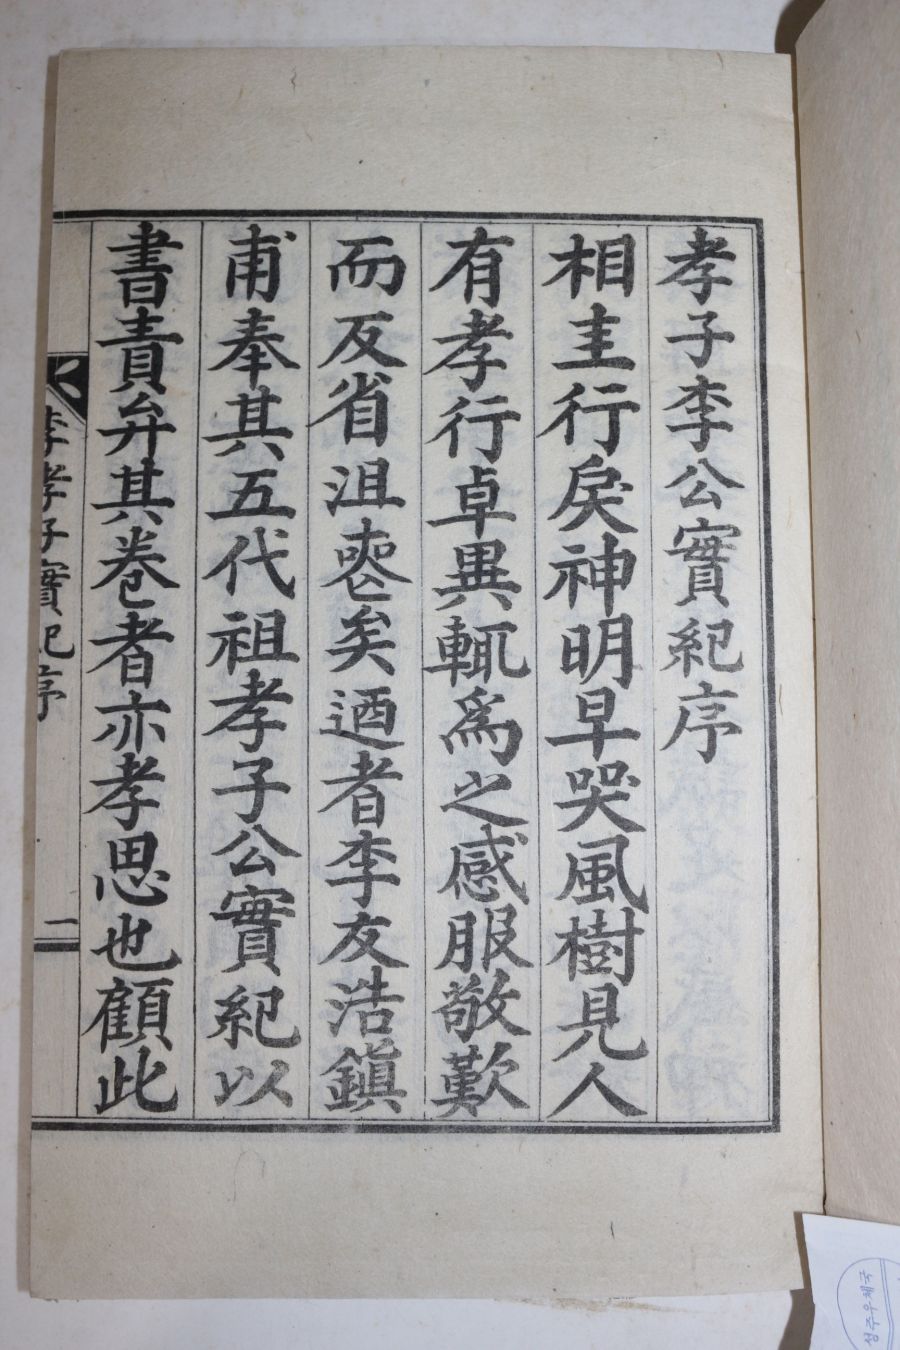 孝子李公實紀序
相圭行戾神明早哭風樹見人
有孝行卓異輒爲之感服敬歎
而反省沮喪矣迺者李友浩鎭
甫奉其五代祖孝子公實紀以
書責弁其卷者亦孝思也顧此
李孝子實紀序
一
성주우체국